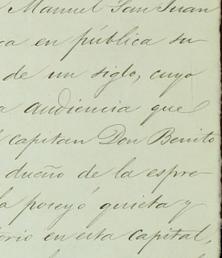 Manuel San Juan
en pública su
de un siglo, cuyo
audiencia que
capitan Don Benito
dueño de la espre
la poseyó quieta y
orio en esta capital,